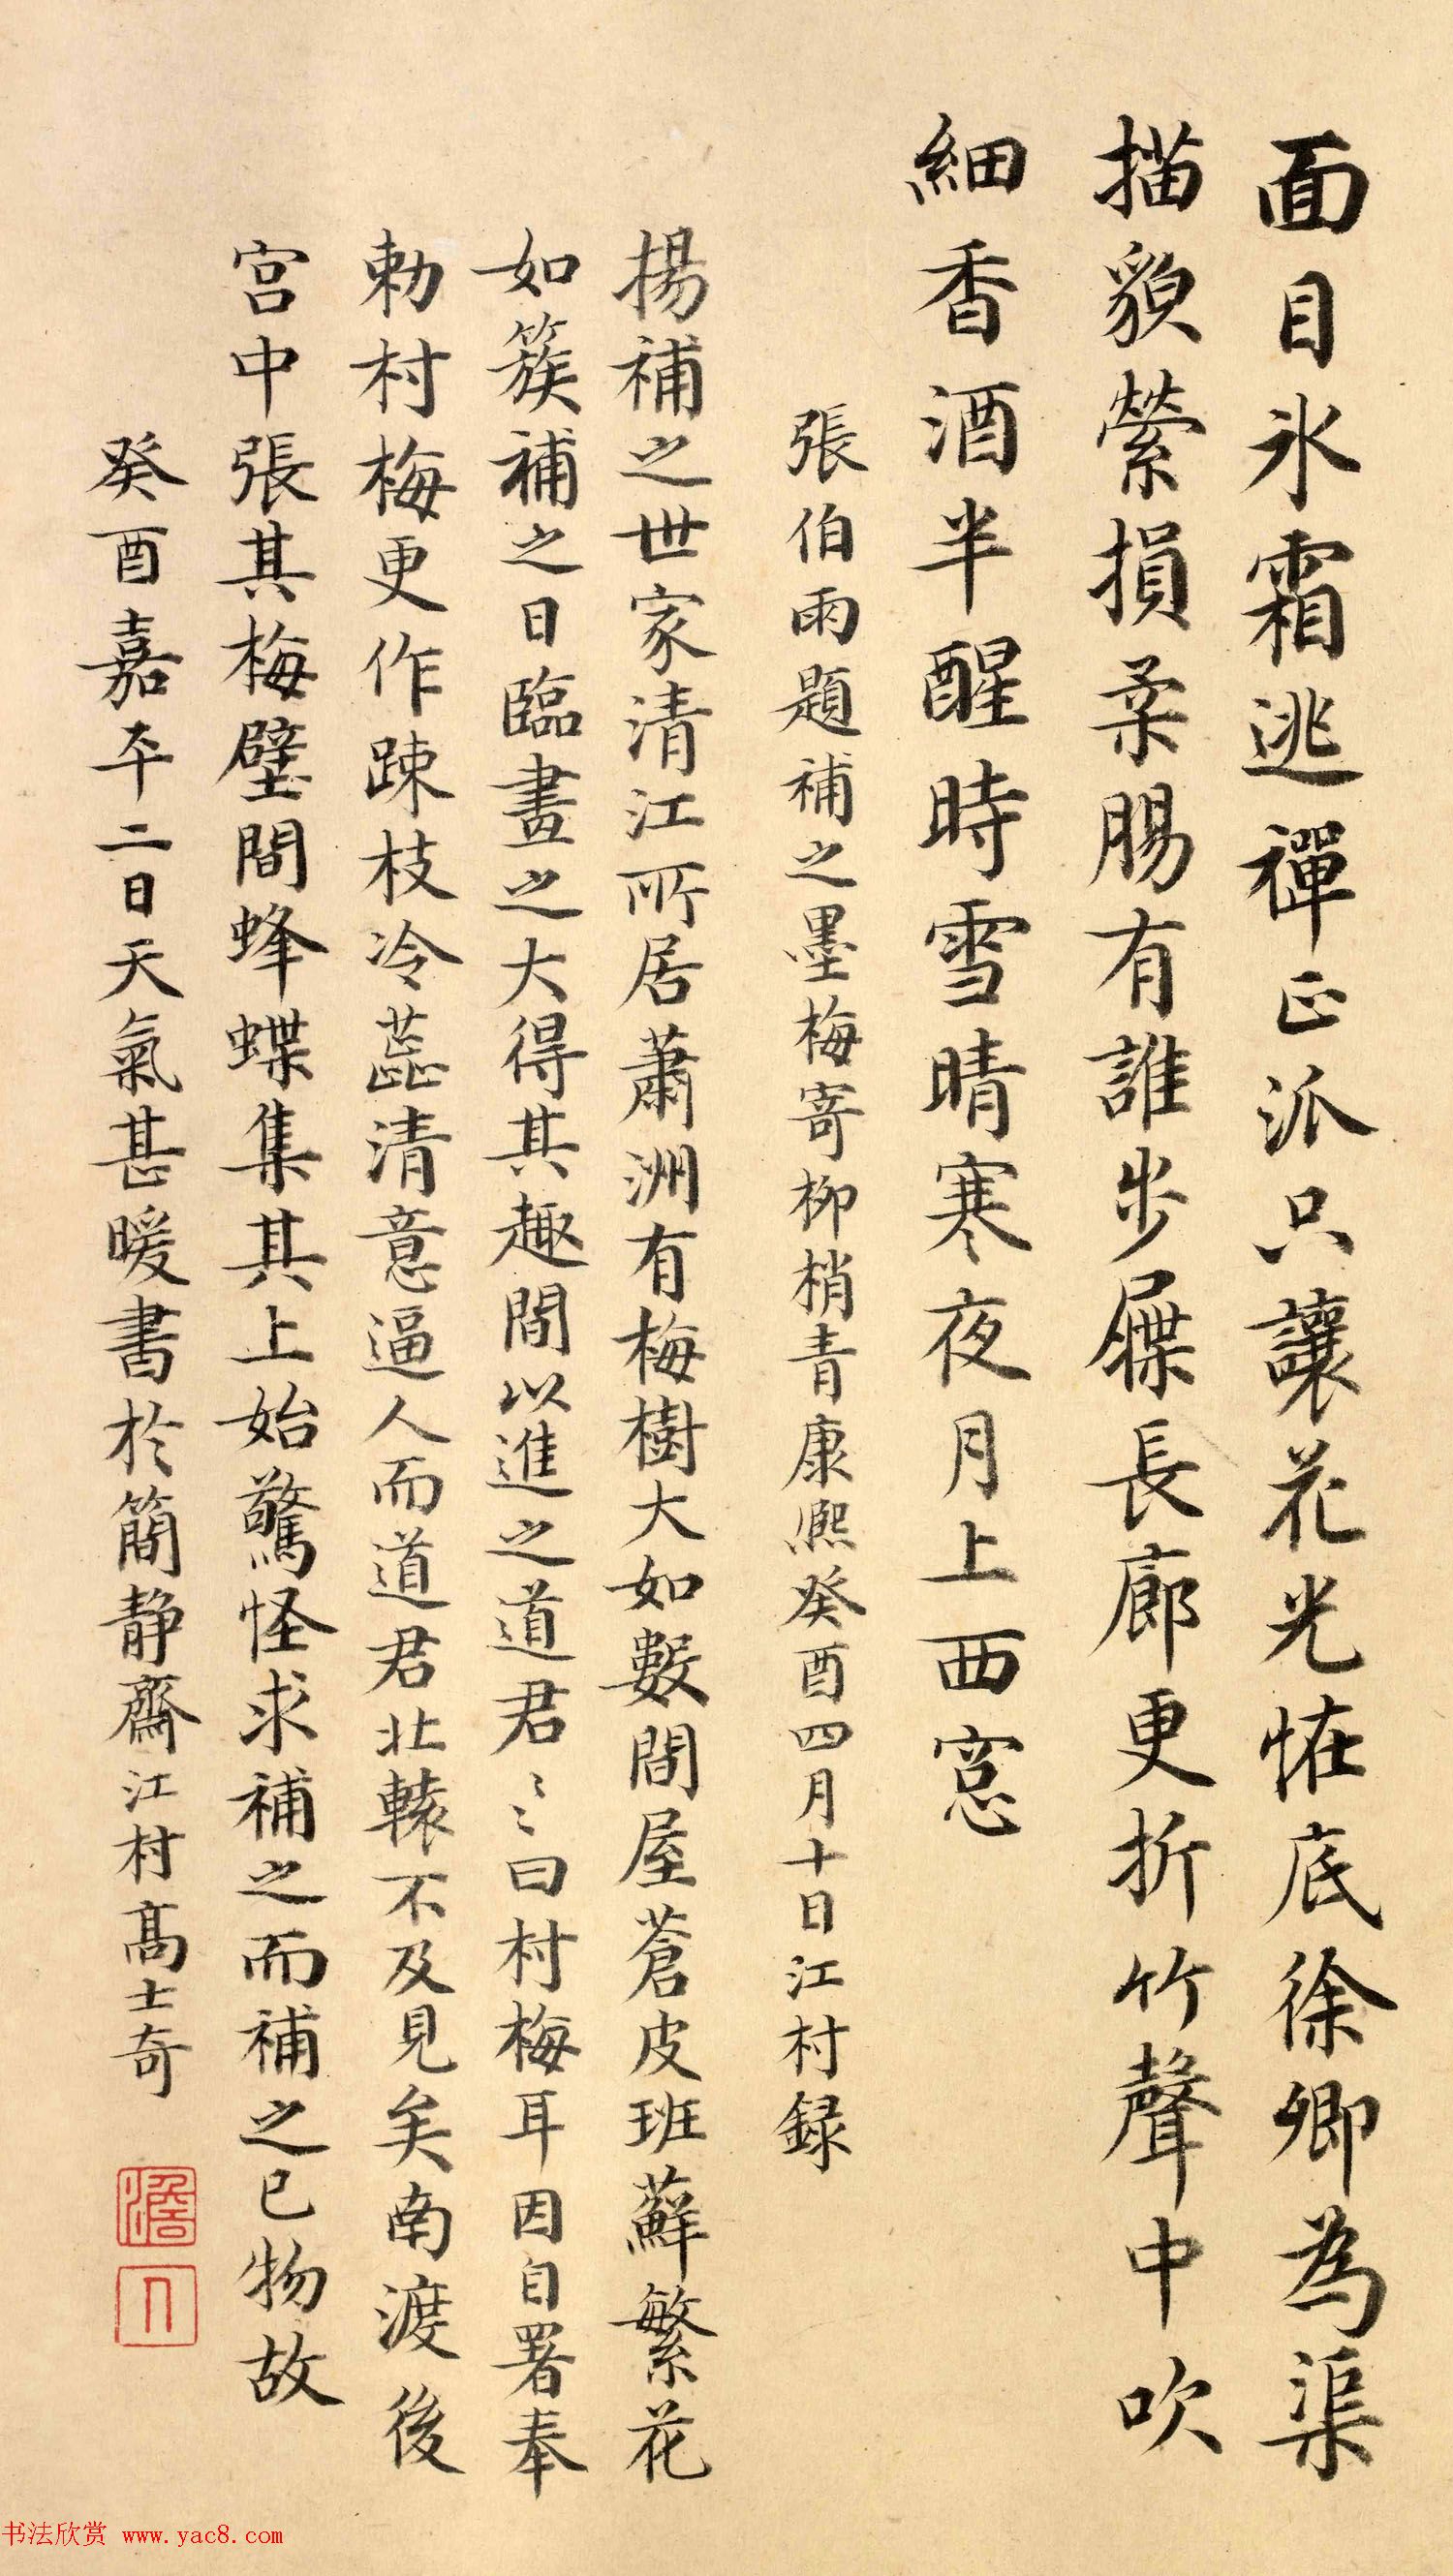 面目氷霜逃禪正派只讓花光恠底徐卿為渠
描貌縈損柔腸有誰步屧長廊更折竹聲中吹
細香酒半醒時雪晴寒夜月上西窓
張伯雨題補之墨梅寄柳梢青康熙癸酉四月十日江村録
揚補之世家清江所居蕭洲有梅樹大如數間屋蒼皮班蘚繁花
如簇補之日臨畫之大得其趣間以進之道君〻〻曰村梅耳因自署奉
勅村梅更作踈枝冷蕋清意逼人而道君北轅不及見矣南渡後
宫中張其梅壁間蜂蝶集其上始驚怪求補之而補之已物故
癸酉嘉平二日天氣甚暖書於簡静齋江村髙士奇
澹
人
书法欣赏 www.yac8.com